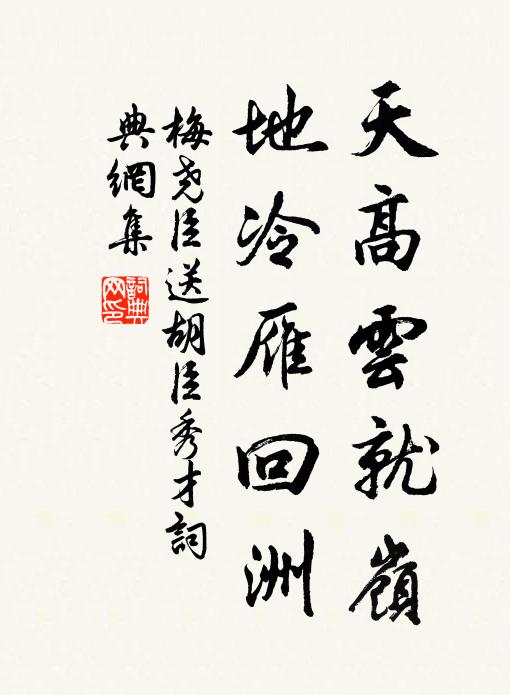 天高雲就嶺
地冷雁回洲
梅堯臣送胡臣秀才詞
典網集
詞典
网印